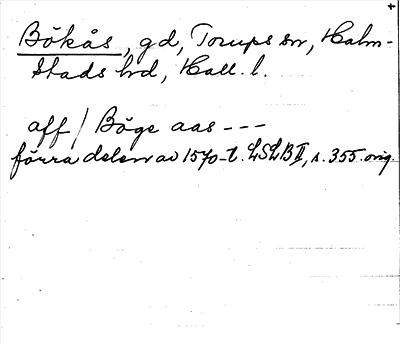 Bökås, gd, Torups sn, Halm-
stads hd, Hall. l.
aff / Böge aas ---
förra delen av 1570-t. LSLB II, s. 355. orig.